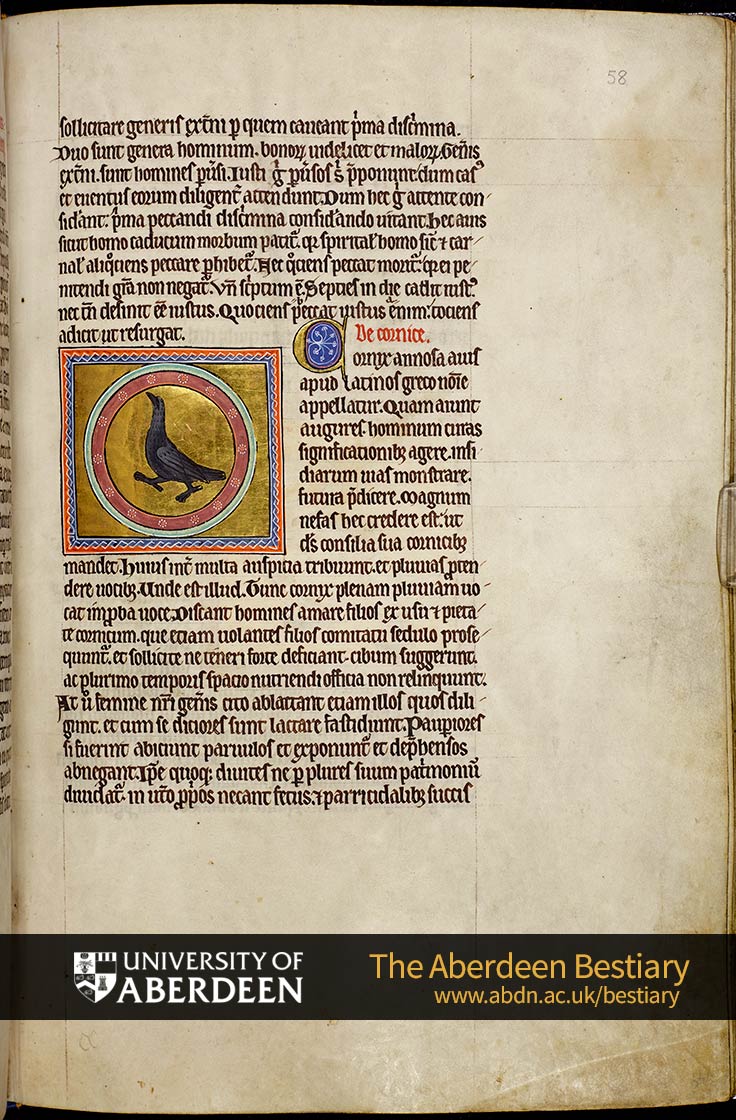 58
sollicitare generis ext̄ni ꝑ quem caueant p̄ma disc̄mina.
Duo sunt genera hominum. bonoꝝ uidelicet et maloꝝ. Gen̄is
ext̄ni. sunt homines ꝑuersi. Iusti g̊ ꝑuersos s̄ p̄ponunt: dum casꝰ
et euentus eorum diligent̄ attendunt. Dum hec g̊ attente con
sid̓ant: p̄ma peccandi disc̄mina consid̓ando uitant. Hec auis
sicut homo caducum morbum patit̄. qꝛ spirital̓ homo sic̄ ⁊ car
nal̓ aliq̊ciens peccare ꝑhibet̄. Nec q̊ciens peccat morit̄: qꝛ ei pe
nitendi gr̄a non negat̄. Vn̄ sc̓ptum ē. Septies in die cadit iustꝰ.
nec tn̄ desinit eē iustus. Quociens peccat iustus enim: tociens
adicit ut resurgat.
De cornice.
Cornyx annosa auis
apud latinos greco noīe
appellatur. Quam aiunt
augures hominum curas
significationibꝫ agere. insi
diarum uias monstrare.
futura p̄dicere. Magnum
nefas hec credere est: ut
ds̄ consilia sua cornicibꝫ
mandet. Huius int̄ multa auspicia tribuunt. et pluuias p̄ten
dere uocibꝫ. Unde est illud. Tunc cornyx plenam pluuiam uo
cat inꝓba uoce. Discant homines amare filios ex usu ⁊ pieta
te cornicum. que etiam uolantes filios comitatu sedulo prose
quunt̄. et sollicite ne teneri forte deficiant. cibum suggerunt.
ac plurimo temporis spacio nutriendi officia non relinquunt.
At ū femine nr̄i gen̄is cito ablactant etiam illos quos dili
gunt. et cum se diciores sunt lactare fastidiunt. Pauꝑiores
si fuerint abiciunt paruulos et exponunt et dep̄hensos
abnegant. Ip̄e quoqꝫ diuites ne ꝑ plures suum pat̓monium̄
diuidat̄. in ut̓o ꝓprios necant fetus: ⁊ parricidalibꝫ succis
UNIVERSITY OF
ABERDEEN
The Aberdeen Bestiary
www.abdn.ac.uk/bestiary